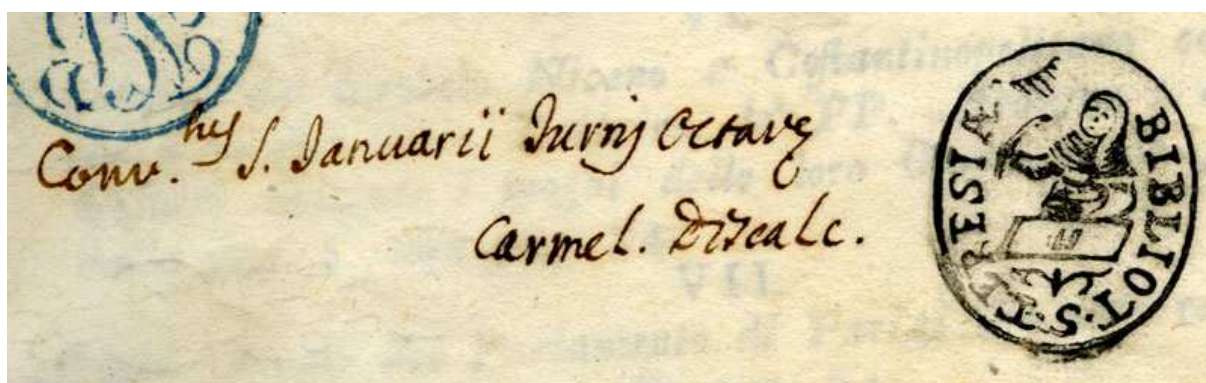 Conv.tus S. Januarii Turris Octavę
Carmel. Discalc.
BIBLIOT·S·TERESIÆ
VII